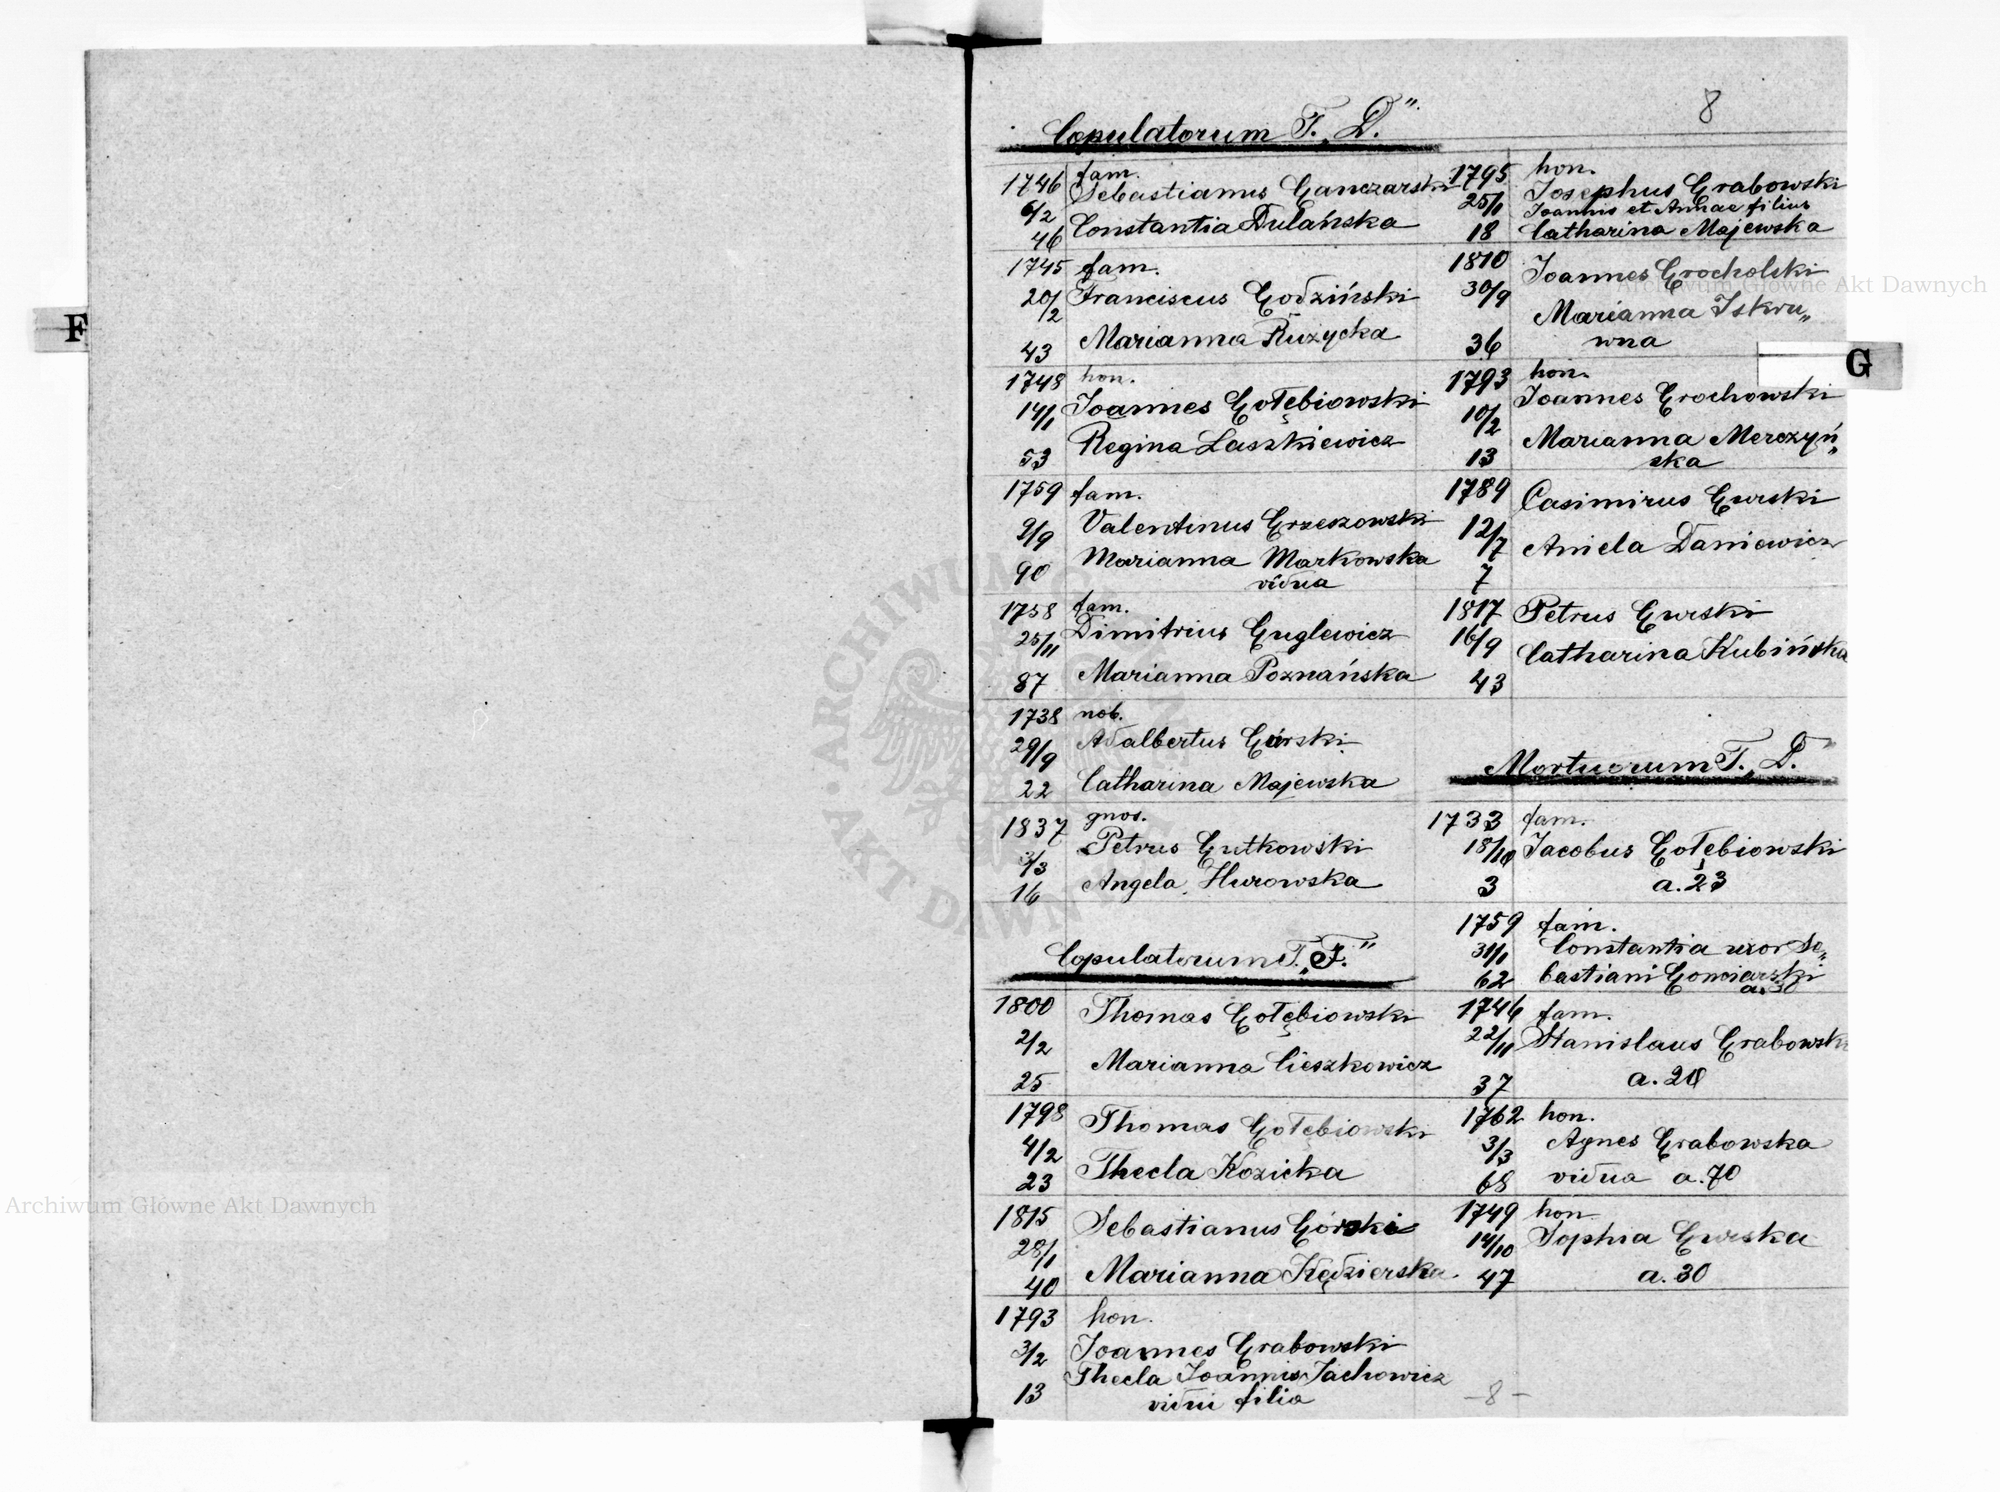 8
Copulatorum T. „D."
1746 fam.
Sebastianus Ganczarski
6/2
46 Constantia Dulańska
1745 fam.
20/2 Franciscus Godziński
43 Marianna Ruzycka
1748 hon.
14/1 Joannes Gołębiowski
53 Regina Laszkiewicz
1759 fam.
9/9 Valentinus Grzeszowski
90 Marianna Markowska
vidua
1758 fam.
25/11 Dimitrius Guglewicz
87 Marianna Poznańska
1738 nob.
29/9 Adalbertus Górski
22 Catharina Majewska
1837 gnos.
3/3 Petrus Gutkowski
16 Angela Hurowska
Copulatorum T. „F."
1800 Thomas Gołębiowski
2/2
25 Marianna Cieszkowicz
1798 Thomas Gołębiowski
4/2
23 Thecla Kozicka
1815 Sebastianus Górski
28/1
40 Marianna Kędzierska
1793 hon.
3/2 Joannes Grabowski
Thecla Joannis Jachowicz
13 vidui filia
1795 hon.
25/1 Josephus Grabowski
Joannis et Annae filius
18 Catharina Majewska
1810 Joannes Grocholski
30/9 Marianna Iskwu„
36 wna
1793 hon.
10/2 Joannes Grochowski
Marianna Merczyń„
13 ska
1789 Casimirus Gurski
12/7 Aniela Daniewicz
7
1817 Petrus Gurski
16/9 Catharina Kubińska
43
Mortuorum T. „D."
1733 fam.
18/10 Jacobus Gołębiowski
3 a. 23
1759 fam.
31/1 Constantia uxor Se„
62 bastiani Gonciarski
a. 30
1746 fam.
22/11 Stanislaus Grabowski
37 a. 20
1762 hon.
3/3 Agnes Grabowska
68 vidua a. 70
1749 hon.
14/10 Sophia Gurska
47 a. 30
-8-
F
G
Archiwum Główne Akt Dawnych
Archiwum Główne Akt Dawnych